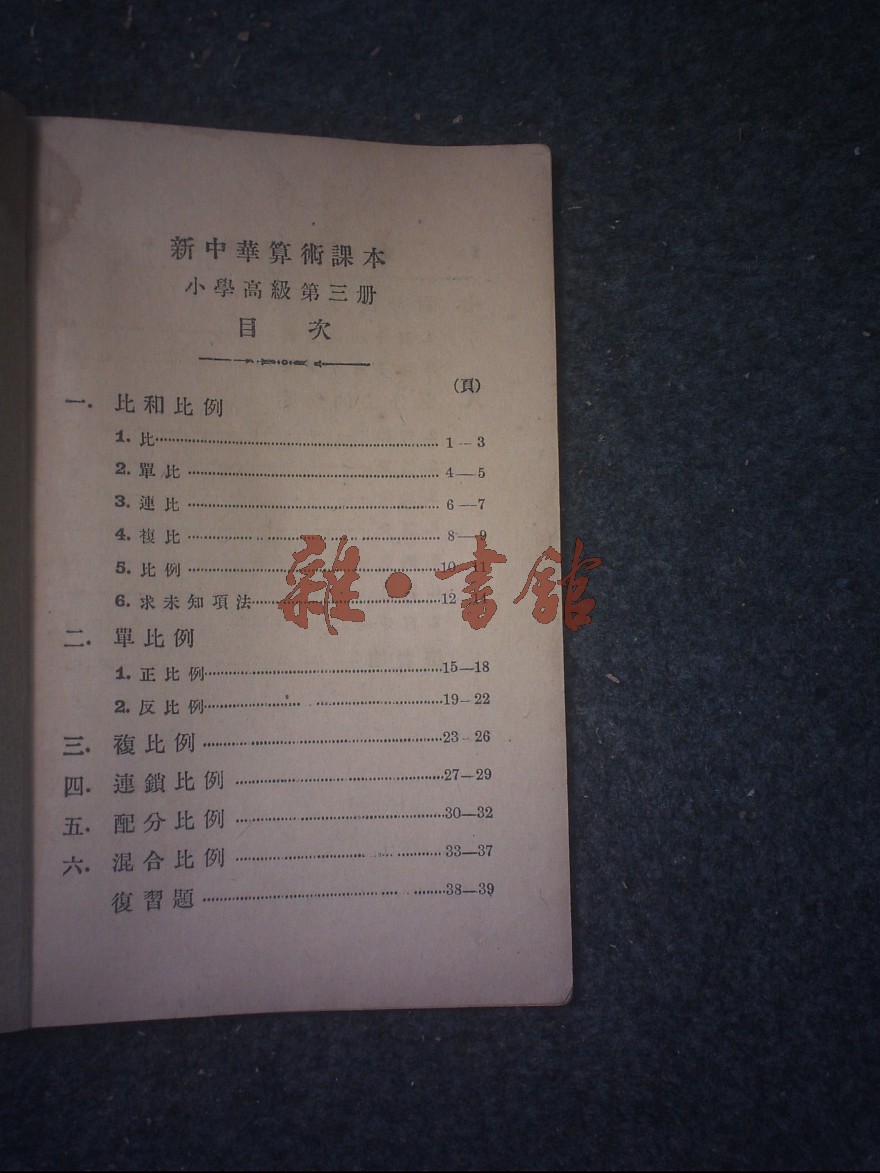 新中華算術課本
小學高級第三册
目 次
(頁)
一. 比和比例
1. 比 1—3
2. 單比 4—5
3. 連比 6—7
4. 複比 8—9
5. 比例 10—11
6. 求未知項法 12—14
二. 單比例
1. 正比例 15—18
2. 反比例 19—22
三. 複比例 23—26
四. 連鎖比例 27—29
五. 配分比例 30—32
六. 混合比例 33—37
復習題 38—39
雜·書館